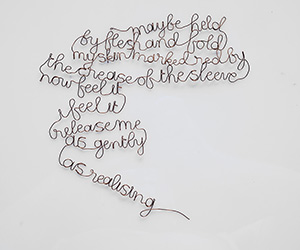 maybe held
by flesh and fold
my skin marked red by
the crease of the sleeve
now feel it
i feel it
release me
as gently
as realising